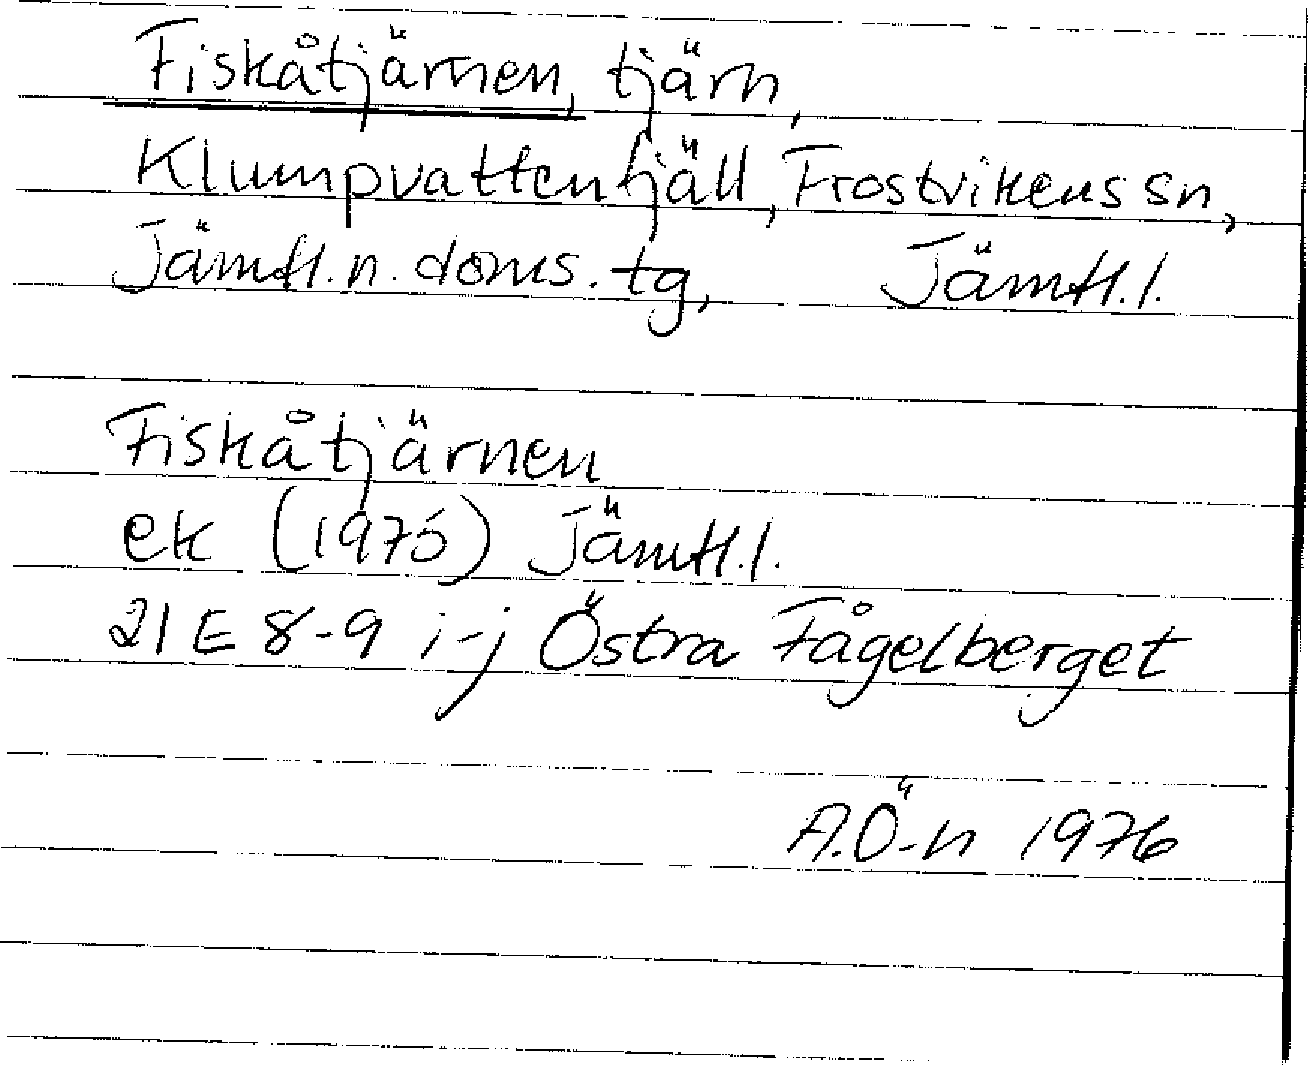 Fiskåtjärnen, tjärn,
Klumpvattenfjäll, Frostvikens sn,
Jämtl. n. doms. tg, Jämtl. l.
Fiskåtjärnen
ek (1975) Jämtl. l.
21 E 8-9 i-j Östra Fågelberget
A.Ö-n 1976